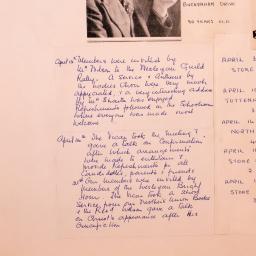 BUCKENHAM DRIVE
90 YEARS OLD
April Members were invited by
Mrs to the Wesleyan Guild
Rally. A Service & Anthems by
the Ladies Choir were very much
appreciated, & a very interesting address
by Mr was enjoyed.
Refreshments followed in the Schoolroom
where everyone was made most
welcome
April The Vicar took the meeting &
gave a talk on Confirmation
after which arrangements
were made to entertain &
provide Refreshments for all
Candidates, parents & friends
Our members were invited by
members of the Wesleyan Bright
Hour. The Vicar took a short
Service from our Mothers Union Books
& the Revd gave a talk
on Christ's appearance after His
Resurrection
APRIL
STORE
APRIL
APRIL
NORTH
APRIL
STORE
APRIL
STORE